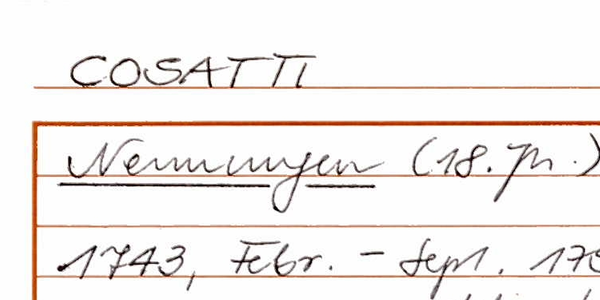 COSATTI
Nennungen (18. Jh.)
1743, Febr. - Sept. 175